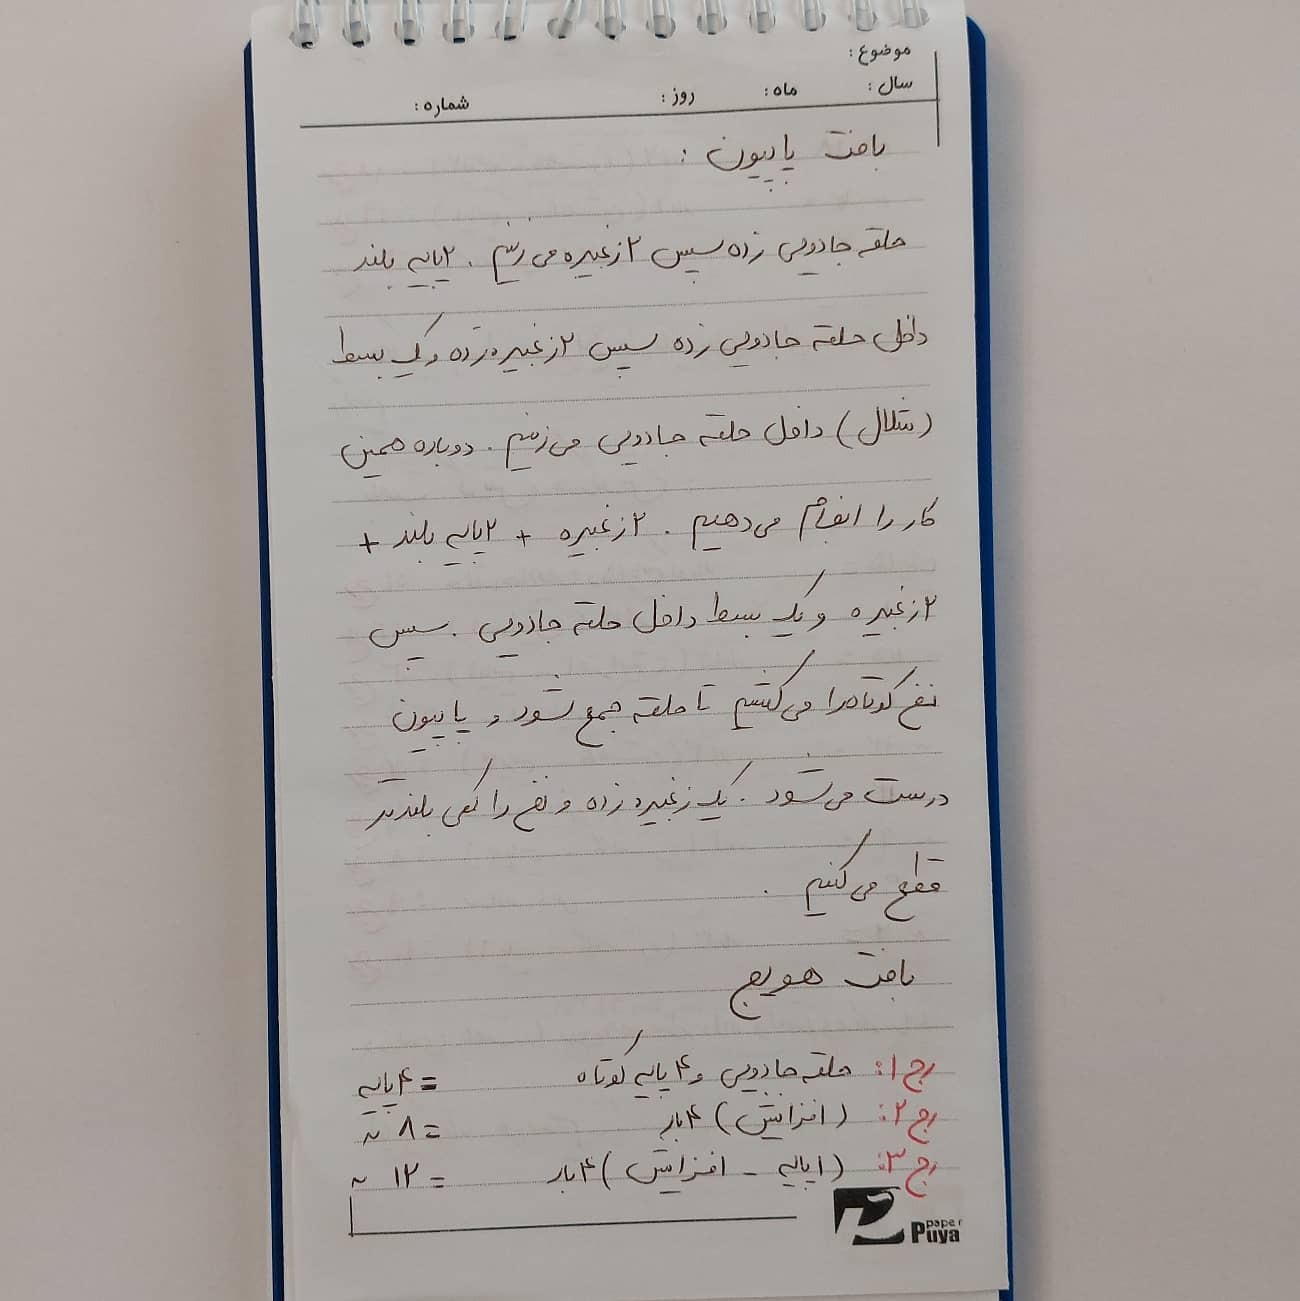 موضوع:
سال: ماه: روز: شماره:
بافت پاپیون :
حلقه جادویی زده سپس ۲ زنجیره می زنیم . ۲ پایه بلند
داخل حلقه جادویی زده سپس ۲ زنجیره زده و یک بسط
(شلال) داخل حلقه جادویی می زنیم . دوباره همین
کار را انجام می دهیم . ۲ زنجیره + ۲ پایه بلند +
۲ زنجیره و یک بسط داخل حلقه جادویی . سپس
نخ کوتاه را می کشیم تا حلقه جمع شود و پاپیون
درست می شود . یک زنجیره زده و نخ را کمی بلندتر
قطع می کنیم .
بافت هویج
رج ۱: حلقه جادویی و ۴ پایه کوتاه = ۴ پایه
رج ۲: (افزایش) ۴ بار = ۸ ~
رج ۳: (۱ پایه - افزایش) ۴ بار = ۱۲ ~
paper
Puya